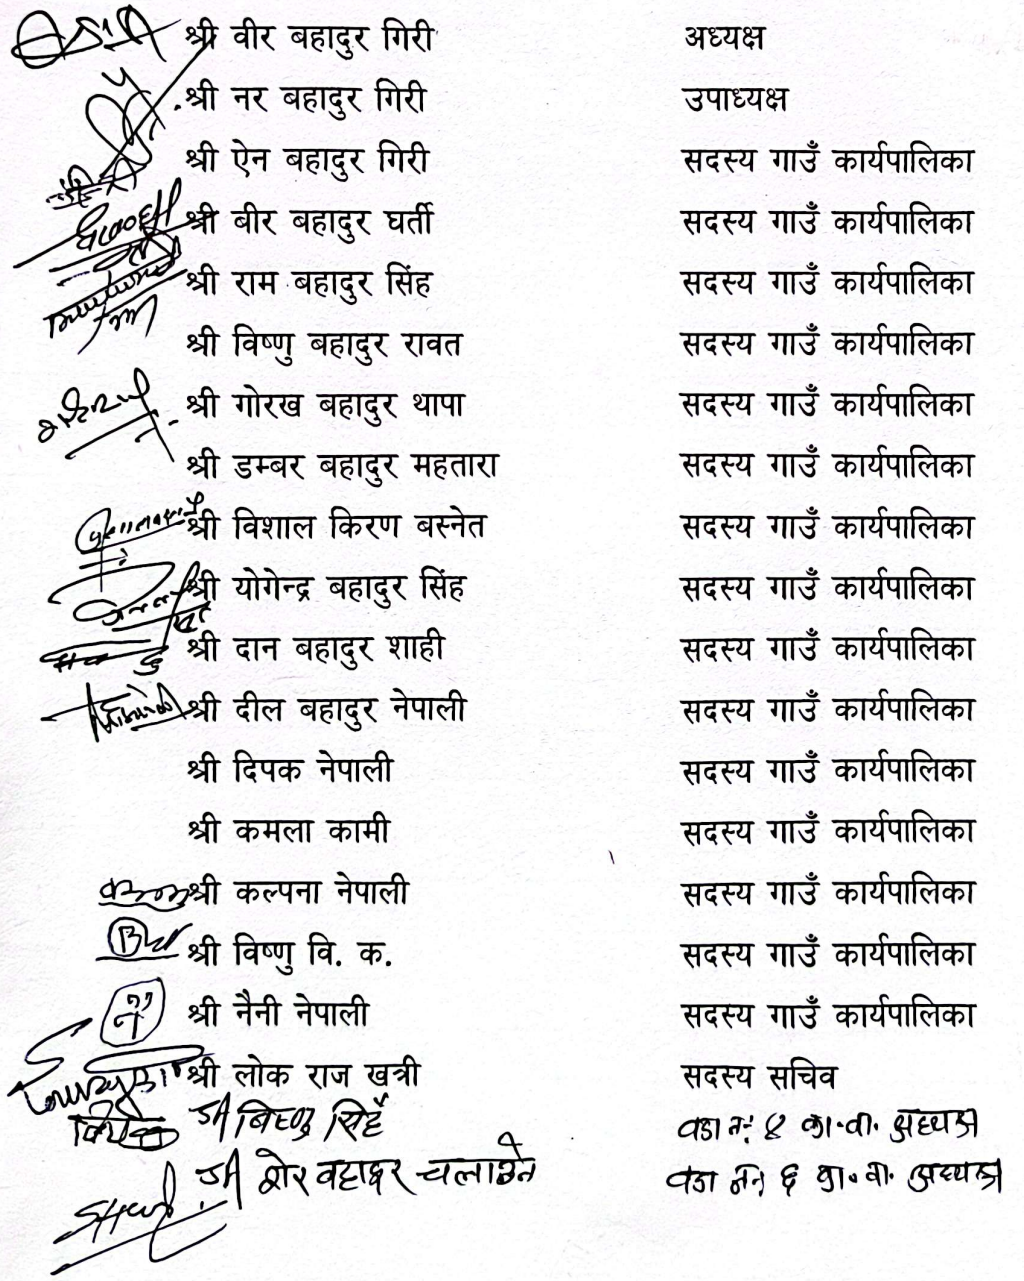 श्री वीर बहादुर गिरी अध्यक्ष
श्री नर बहादुर गिरी उपाध्यक्ष
श्री ऐन बहादुर गिरी सदस्य गाउँ कार्यपालिका
श्री बीर बहादुर घर्ती सदस्य गाउँ कार्यपालिका
श्री राम बहादुर सिंह सदस्य गाउँ कार्यपालिका
श्री विष्णु बहादुर रावत सदस्य गाउँ कार्यपालिका
श्री गोरख बहादुर थापा सदस्य गाउँ कार्यपालिका
श्री डम्बर बहादुर महतारा सदस्य गाउँ कार्यपालिका
श्री विशाल किरण बस्नेत सदस्य गाउँ कार्यपालिका
श्री योगेन्द्र बहादुर सिंह सदस्य गाउँ कार्यपालिका
श्री दान बहादुर शाही सदस्य गाउँ कार्यपालिका
श्री दील बहादुर नेपाली सदस्य गाउँ कार्यपालिका
श्री दिपक नेपाली सदस्य गाउँ कार्यपालिका
श्री कमला कामी सदस्य गाउँ कार्यपालिका
श्री कल्पना नेपाली सदस्य गाउँ कार्यपालिका
श्री विष्णु वि. क. सदस्य गाउँ कार्यपालिका
श्री नैनी नेपाली सदस्य गाउँ कार्यपालिका
श्री लोक राज खत्री सदस्य सचिव
श्री बिष्णु सिहँ वडा नं ४ का.वा. अध्यक्ष
श्री शेर बहादुर चलाउने वडा नं ६ का.वा. अध्यक्ष